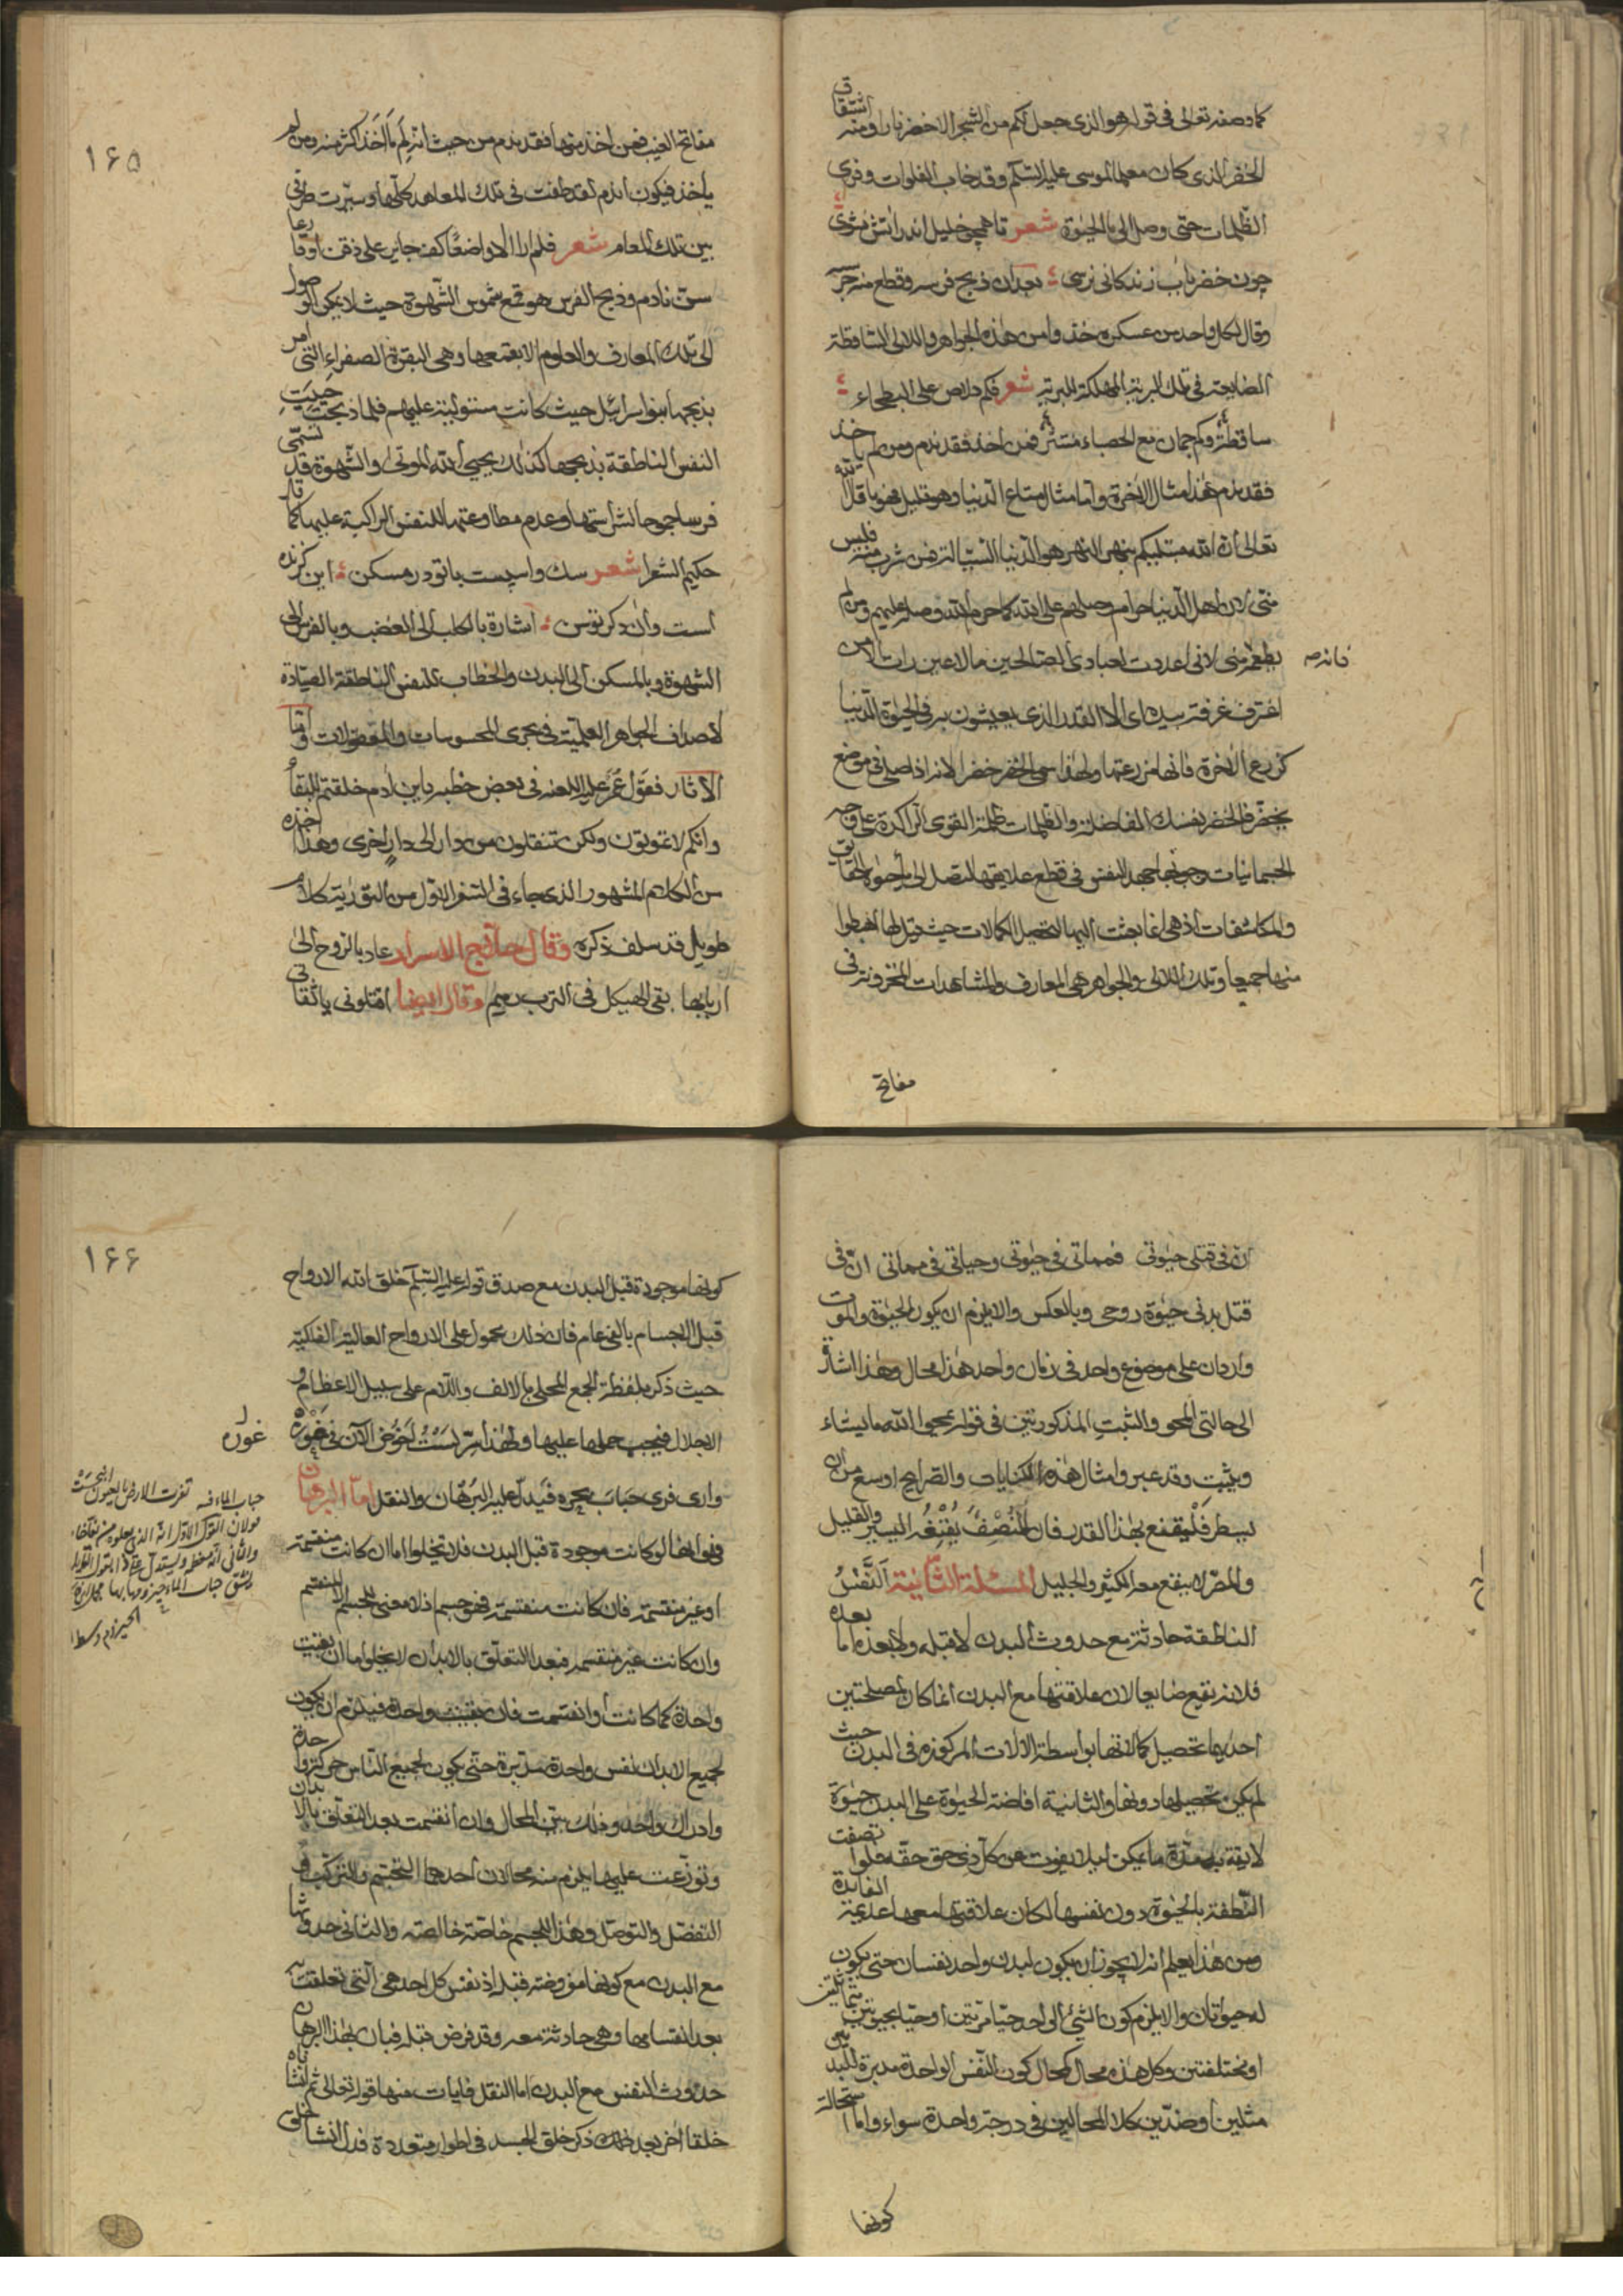 كما وصفه تعالى فى قوله هو الذى جعل لكم من الشجر الاخضر نارا ومنه اشتقاق
الخضر الذى كان معلما لموسى عليه السلم وقد خاب الفلوات وفرى
الظلمات حتى وصل الى ماء الحيوة شعر تا همچو خليل اندر آتش نشوى
چون خضر بآب زندكانى نرسى بعد ان ذبح فرسه وقطع منه جزء
وقال لكل واحد من عسكره خذوا من هذه الجواهر واللالى الساقطة
الضايعة فى تلك البرية المهلكة المبرية شعر فكم دلاص على البطحاء
ساقطة وكم جمان مع الحصباء منتثر فمن اخذ فقد ندم ومن لم ياخذ
فقد ندم هذا مثال الاخرة واما مثال متاع الدنيا وهو قليل فهو ما قال الله
تعالى ان الله مبتليكم بنهر النهر هو الدنيا السيالة فمن شرب منه فليس
منى لان اهل الدنيا حرام وصلهم على الله كما حرم الله وصله عليهم ومن لم
يطعمه منى لانى اعددت لعبادى الصالحين ما لا عين رات الا من
فانه صه
اغترف غرفة بيده اى الا القدر الذى يعيشون به فى الحيوة الدنيا
كزرع الاخرة فانها مزرعتها ولهذا سمى الخضر خضرا لانه اذا صلى فى موضع
يخضر فالخضر نفسك الفاضلة والظلمات ظلمة القوى الراكدة على وجه
الجسمانيات وجوبها جهد النفس فى قطع علايقها لتصل الى ماء حيوة الحقايق
والمكاشفات اذ هى انما بعثت اليها لتحصيل الكمالات حيث قيل لها اهبطوا
منها جميعا وتلك اللالى والجواهر هى المعارف والمشاهدات المخزونة فى
مفاتح
١٦٥
مفاتح الغيب فمن اخذ منها فقد ندم من حيث انه لم ما اخذ اكثر منه ومن لم
ياخذ فيكون اندم لقد طفت فى تلك المعاهد كلها وسيرت طرفى
بين تلك المعالم شعر فلم ار الا واضعا كف حاير على ذقن او قارعا
سن نادم وذبح الفرس هو قمع شموس الشهوة حيث لا يمكن الوصول
الى تلك المعارف والعلوم الا بقمعها وهى البقرة الصفراء التى امر
بذبحها بنو اسرائيل حيث كانت مستولية عليهم فلما ذبحت حييت
النفس الناطقة بذبحها كذلك يحيى الله الموتى والشهوة قد تسمى
فرسا جموحا لشراستها وعدم مطاوعتها للنفس الراكبة عليها كما قال
حكيم الشعرا شعر سك واسپست با تو در مسكن اين كزنده
است وان دكر توسن اشارة بالكلب الى الغضب وبالفرس الى
الشهوة وبالمسكن الى البدن والخطاب للنفس الناطقة الصيادة
لاصداف الجواهر العلمية فى بحرى المحسوسات والمعقولات واما
الاثار فقول عمر عليه اللعنه فى بعض خطبه يا ابن ادم خلقتم للبقاء
وانكم لا تموتون ولكن تنقلون من دار الى دار اخرى وهذا اخذه
من الكلام المشهور الذى جاء فى السفر الاول من التورية كلام
طويل قد سلف ذكره وقال حلاج الاسرار عاد بالروح الى
اربابها بقى الهيكل فى الترب رميم وقال ايضا اقتلونى يا ثقاتى
ان فى قتلى حيوتى فمماتى فى حيوتى وحياتى فى مماتى ان فى
قتل بدنى حيوة روحى وبالعكس والا يلزم ان يكون الحيوة والموت
واردان على موضوع واحد فى زمان واحد هذا محال وهذا اشارة
الى حالتى المحو والثبت المذكورتين فى قوله يمحوا الله ما يشاء
ويثبت وقد عبر وامثال هذه الكنايات والصرايح اوسع من ان
يسطر فليقنع بهذا القدر فان المنصف يقنعه اليسير والقليل
والمصر لا ينفع معه الكثير والجليل المسئلة الثانية النفس
الناطقة حادثة مع حدوث البدن لا قبله ولا بعده اما بعده
فلانه يقع ضايعا لان علاقتها مع البدن انما كان لمصلحتين
احديهما تحصيل كمالاتها بواسطة الالات المركوزة فى البدن حيث
لم يكن تحصيلها دونها والثانية افاضة الحيوة على البدن حيوة
لايقة به مدة ما يمكن لئلا يفوت عن كل ذى حق حقه فلو اتصفت
النطفة بالحيوة دون نفسها لكان علاقتها معها عديمة الفائدة
ومن هذا يعلم انه لا يجوز ان يكون لبدن واحد نفسان حتى يكون
له حيوتان والا يلزم كون الشئ الواحد حيا مرتين او حيا بحيوتين متماثلتين
او مختلفتين وكل هذه محال كمحال كون النفس الواحدة مدبرة للبدنين
مثلين او ضدين كلا المحالين فى درجة واحدة سواء واما استحالة
كونها
١٦٦
كونها موجودة قبل البدن مع صدق قوله عليه السلم خلق الله الارواح
قبل الاجسام بالفى عام فان ذلك محمول على الارواح العالية الفلكية
حيث ذكر بلفظة الجمع المحلى بالالف واللام على سبيل الاعظام و
الاجلال فيجب حملها عليها ولهذا سر لست اخوض الان فى غوره
غوره
وارى فرى حباب بحره فيدل عليه البرهان والنقل اما البرهان
فهو انها لو كانت موجودة قبل البدن فلا تخلوا اما ان كانت منقسمة
او غير منقسمة فان كانت منقسمة فهو جسم اذ لا معنى للجسم الا المنقسم
وان كانت غير منقسمة فبعد التعلق بالابدان لا يخلوا اما ان بقيت
واحدة كما كانت او انقسمت فان بقيت واحدة فيلزم ان يكون
لجميع الابدان نفس واحدة مدبرة حتى يكون لجميع الناس حركة واحدة
وادراك واحد وذلك بين المحال وان انقسمت بعد التعلق بالابدان
وتوزعت عليها يلزم منه محالان احدهما التجسم والتركب و
التفصل والتوصل وهذا للجسم خاصة خالصة والثانى حدوثها
مع البدن مع كونها مفروضة قبله اذ نفس كل احد هى التى تعلقت به
بعد انقسامها وهى حادثة معه وقد فرض قبله فبان بهذا البرهان
حدوث النفس مع البدن اما النقل فايات منها قوله تعالى ثم انشاناه
خلقا اخر بعد ذلك ذكر خلق الجسد فى اطوار متعددة فدل انشا الخلق